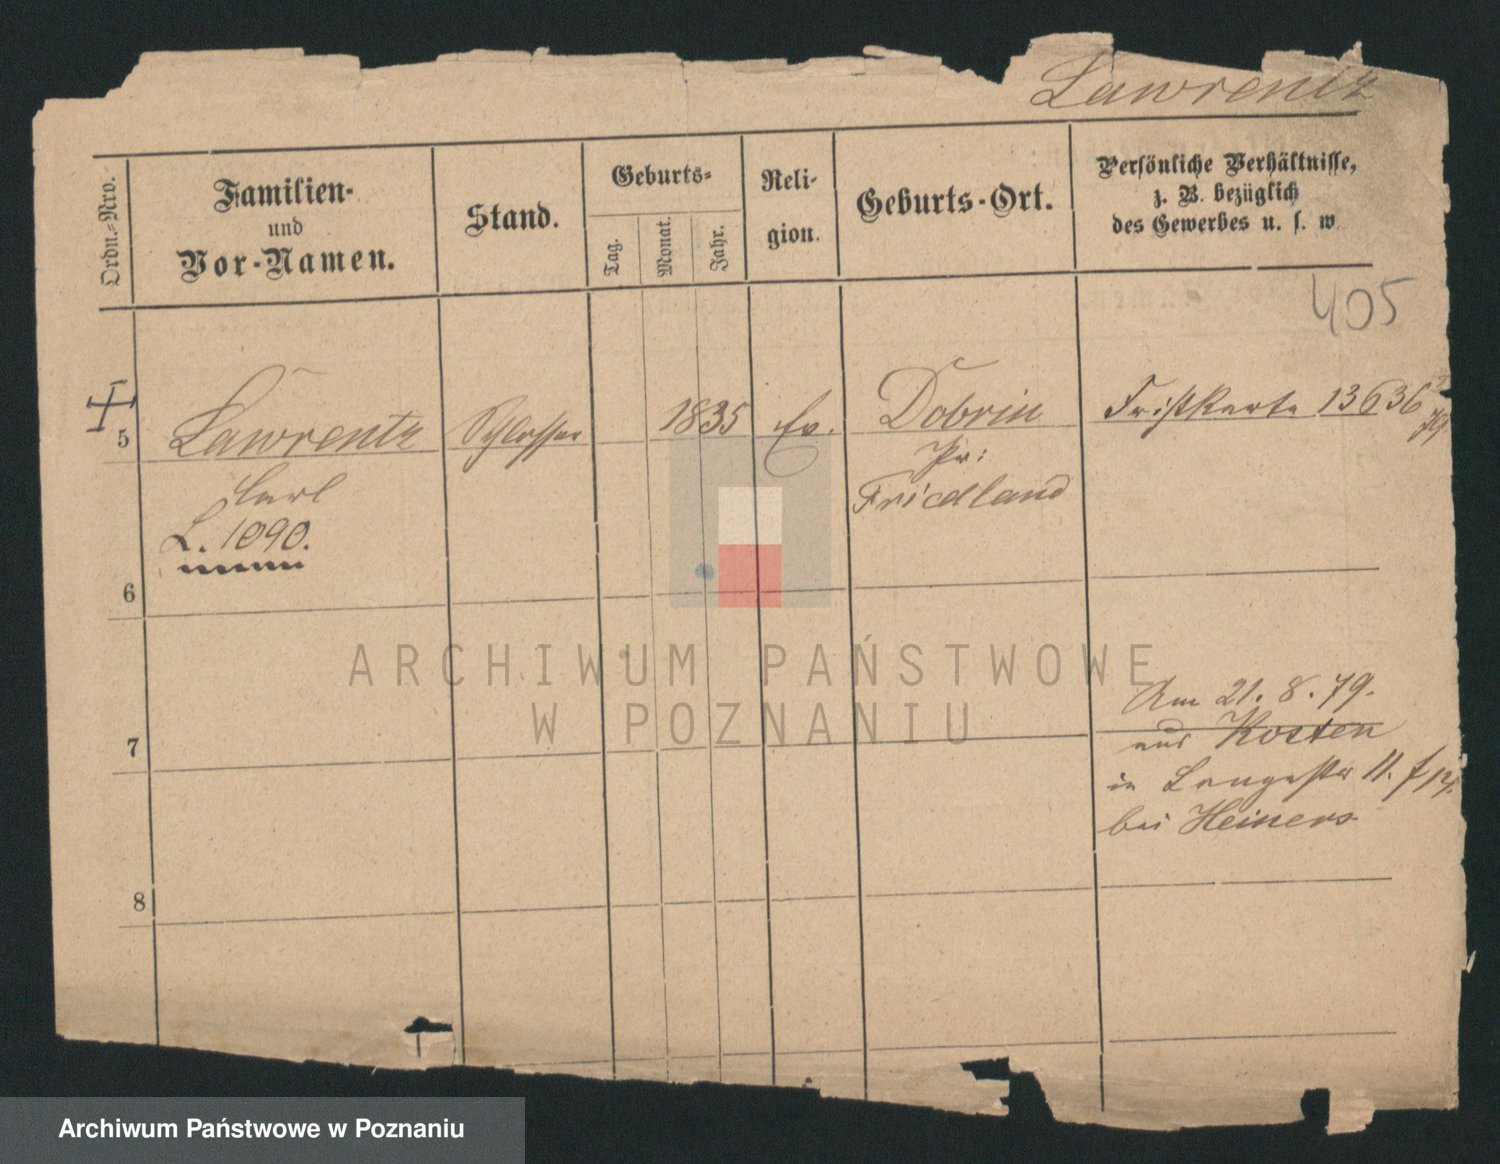 Lawrentz
Ordn.-Nro.
Familien-
und
Vor-Namen.
Stand.
Geburts-
Tag.
Monat.
Jahr.
Reli-
gion.
Geburts-Ort.
Persönliche Verhältnisse,
z. B. bezüglich
des Gewerbes u. s. w
405
5
Lawrentz
Schlosser
1835
Ev.
Dobrin
Fristkarte 13636
Carl
Pr:
L. 1090.
Friedland
6
7
Am 21. 8. 79.
aus Kosten
in Langestr 11.
bei Heiners
8
ARCHIWUM PAŃSTWOWE
W POZNANIU
Archiwum Państwowe w Poznaniu